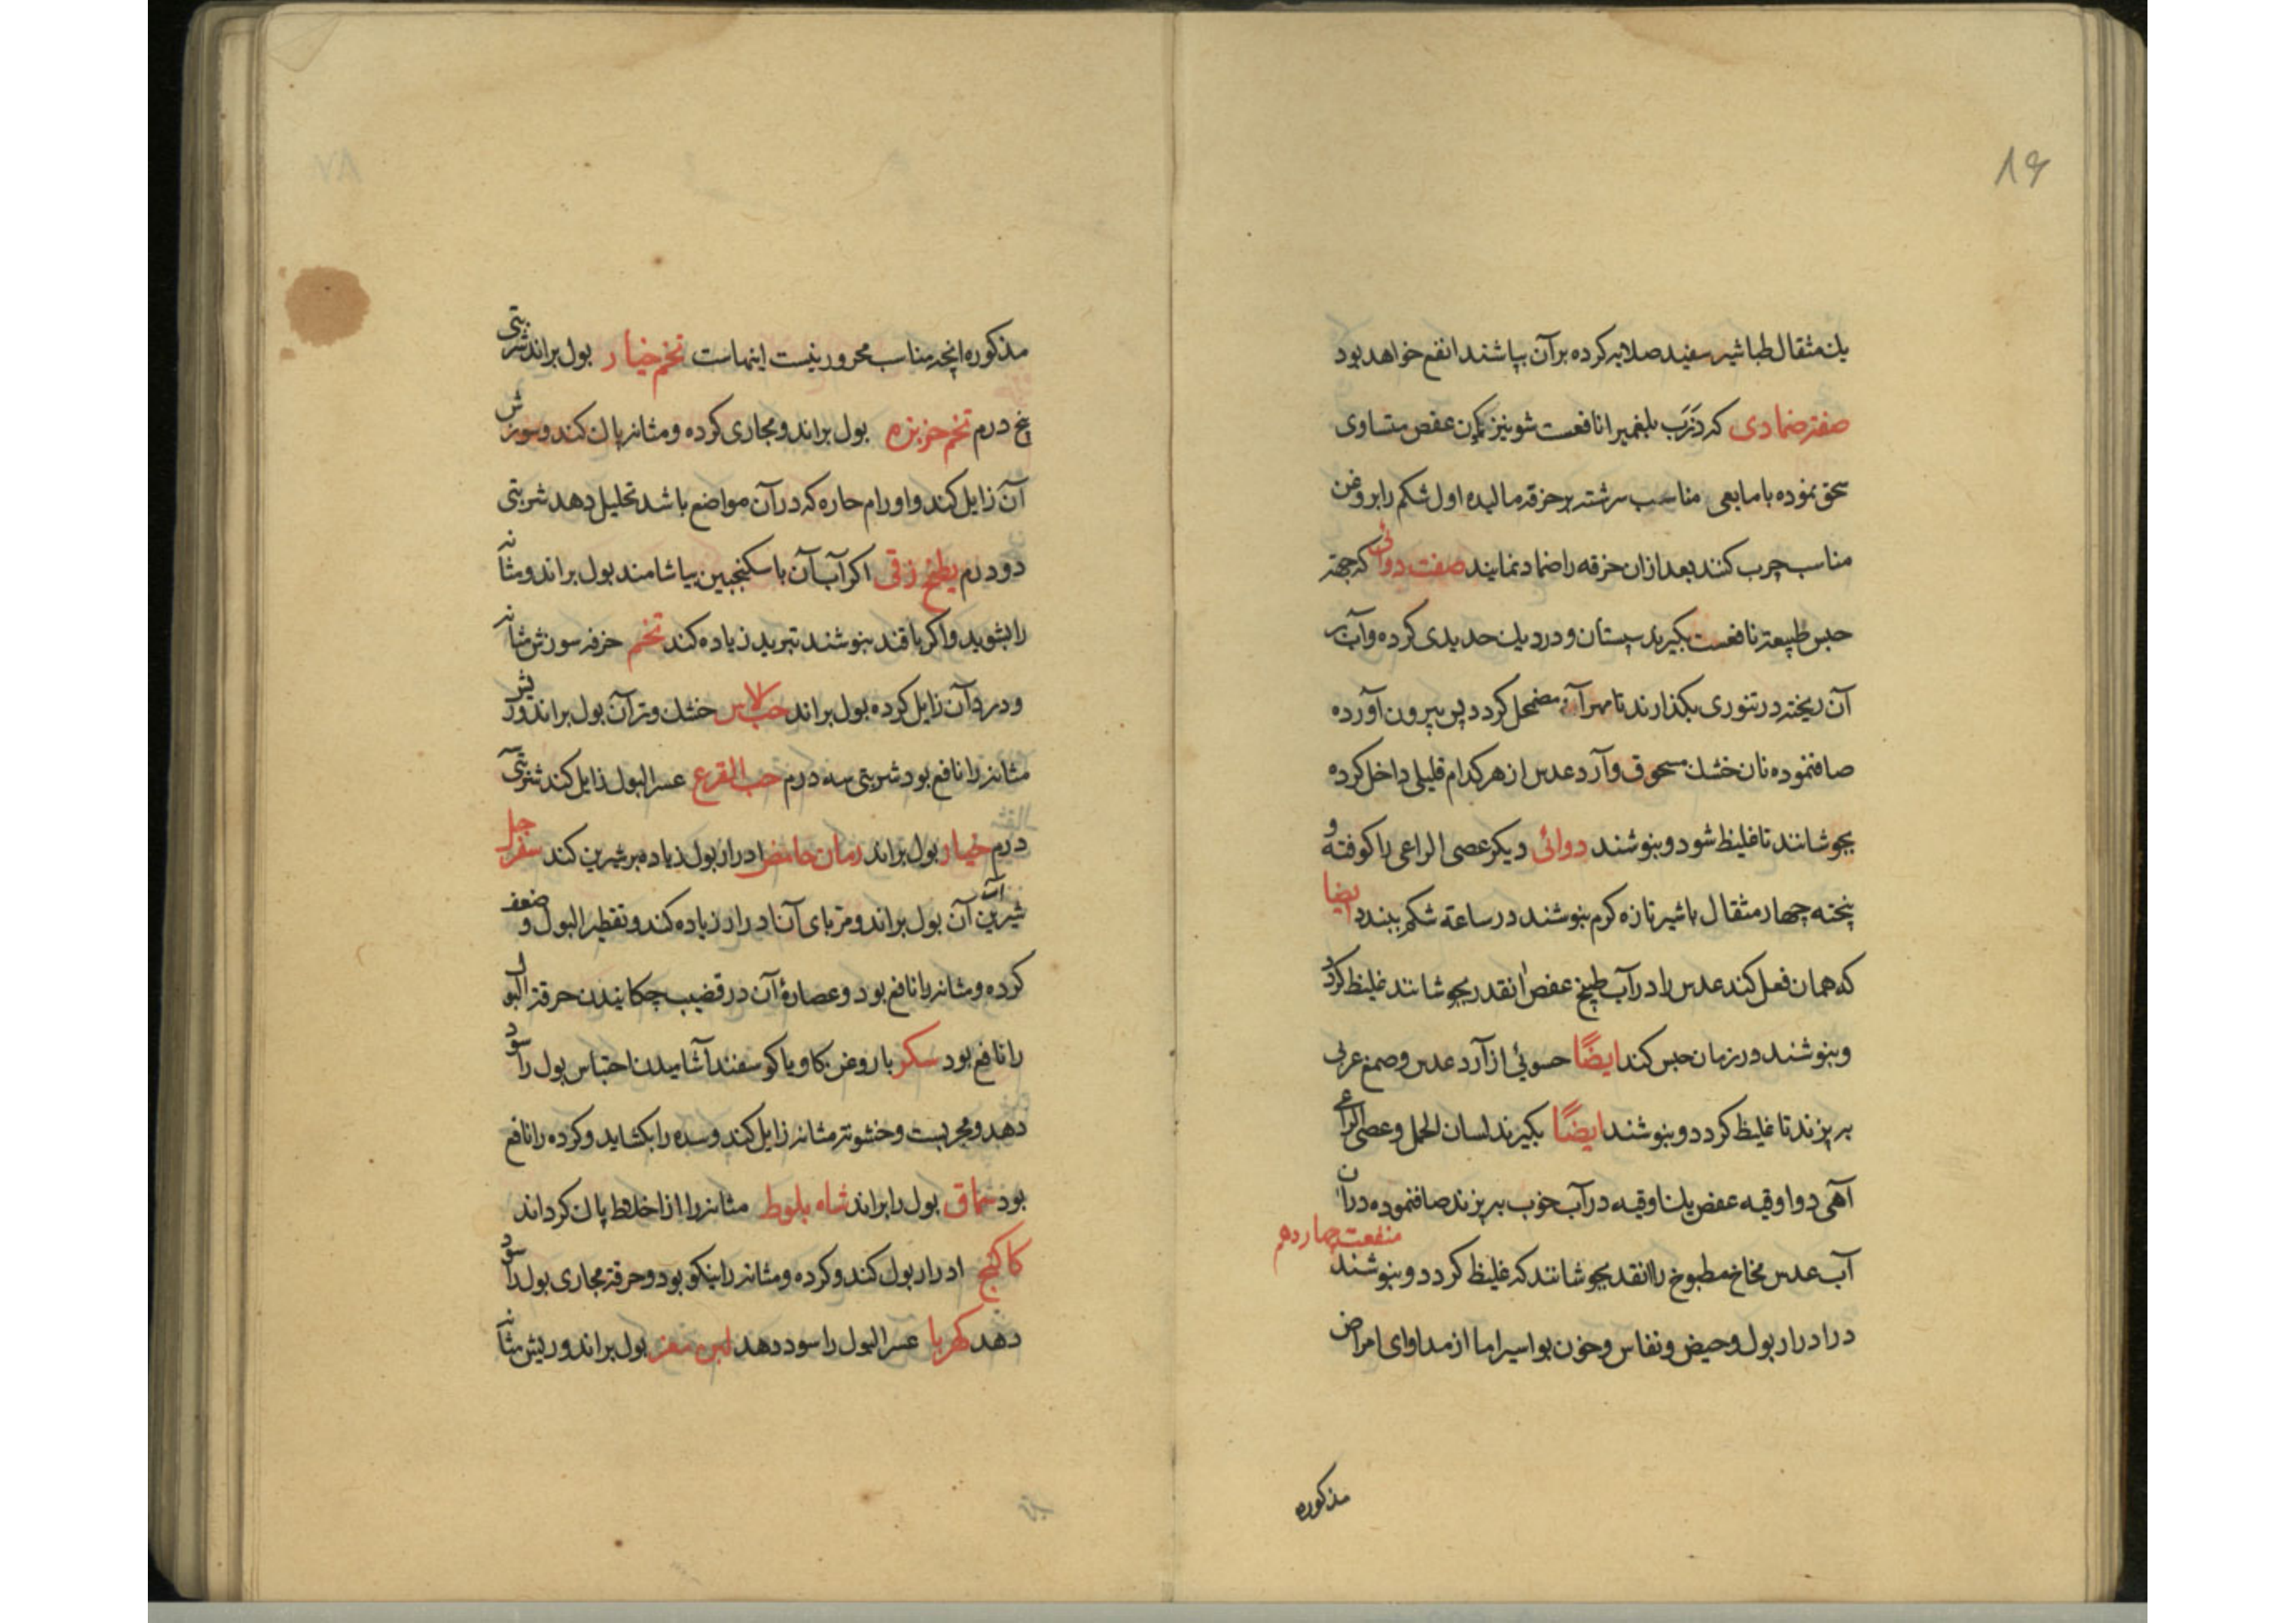 ۸۶
یک مثقال طباشیر سفید صلایه کرده بر آن بپاشند انفع خواهد بود
صفة ضمادی که ذَرَب بلغمیرا نافعست شونیز عفص متساوی
سحق نموده با مایعی مناسب سرشته بر خرقه مالیده اول شکم را بروغن
مناسب چرب کنند بعد ازان خرقه را ضماد نمایند صفت دوائی که جهة
حبس طبیعة نافعست بکیرند پستان و در دیک حدیدی کرده و آب بر
آن ریخته در تنوری بکذارند تا مهرا مضمحل کردد پس بیرون آورده
صافنموده نان خشک مسحوق و آرد عدس از هر کدام قلیلی داخل کرده
بجوشانند تا غلیظ شود و بنوشند دوائی دیکر عصی الراعی را کوفته و
پخته چهار مثقال با شیر تازه کرم بنوشند در ساعة شکم ببندد ایضا
که همان فعل کند عدس را در آب طبیخ عفص انقدر بجوشانند غلیظ کردد
و بنوشند در زمان حبس کند ایضًا حسوئی از آرد عدس و صمغ عربی
به پزند تا غلیظ کردد و بنوشند ایضًا بکیرند لسان الحمل و عصی الراعی
آهی دو اوقیه عفص یک اوقیه در آب خوب به پزند صافنموده در آن
آب عدس مطبوخ را انقد بجوشانند که غلیظ کردد و بنوشند
منفعت چهاردهم
در ادرار بول و حیض و نفاس و خون بواسیر اما از مداوای امراض
مذکوره
مذکوره انچه مناسب محرورینست اینهاست تخم خیار بول براند شربتی
پنج درم تخم خربزه بول براند و مجاری کرده و مثانه پاک کند و سوزش
آن زایل کند و اورام حاره که در آن مواضع باشد تحلیل دهد شربتی
دو درم بطیخ زقی اکر آب آن با سکنجبین بیاشامند بول براند و مثانه
را بشوید و اکر با قند بنوشند تبرید زیاده کند تخم خرفه سوزش مثانه
و درد آن زایل کرده بول براند حب الاس خشک و تر آن بول براند و ریش
مثانه را نافع بود شربتی سه درم حب القرع عسر البول زایل کند شربتی
درم خیار بول براند رمان حامض ادرار بول زیاده بر شیرین کند سفرجل
شیرین آب آن بول براند و مربای آن ادرار زیاده کند و تقطیر البول و ضعف
کرده و مثانه را نافع بود و عصارهٔ آن در قضیب چکانیدن حرقة البول
را نافع بود سکر با روغن کاو یا کوسفند آشامیدن احتباس بول را سود
دهد و مجربست و خشونة مثانه زایل کند و سده را بکشاید و کرده را نافع
بود سماق بول را براند شاه بلوط مثانه را از اخلاط پاک کرداند
کاکنج ادرار بول کند و کرده و مثانه را نیکو بود و حرقة مجاری بول را سود
دهد کهربا عسر البول را سود دهد لبن معز بول براند و ریش مثانه